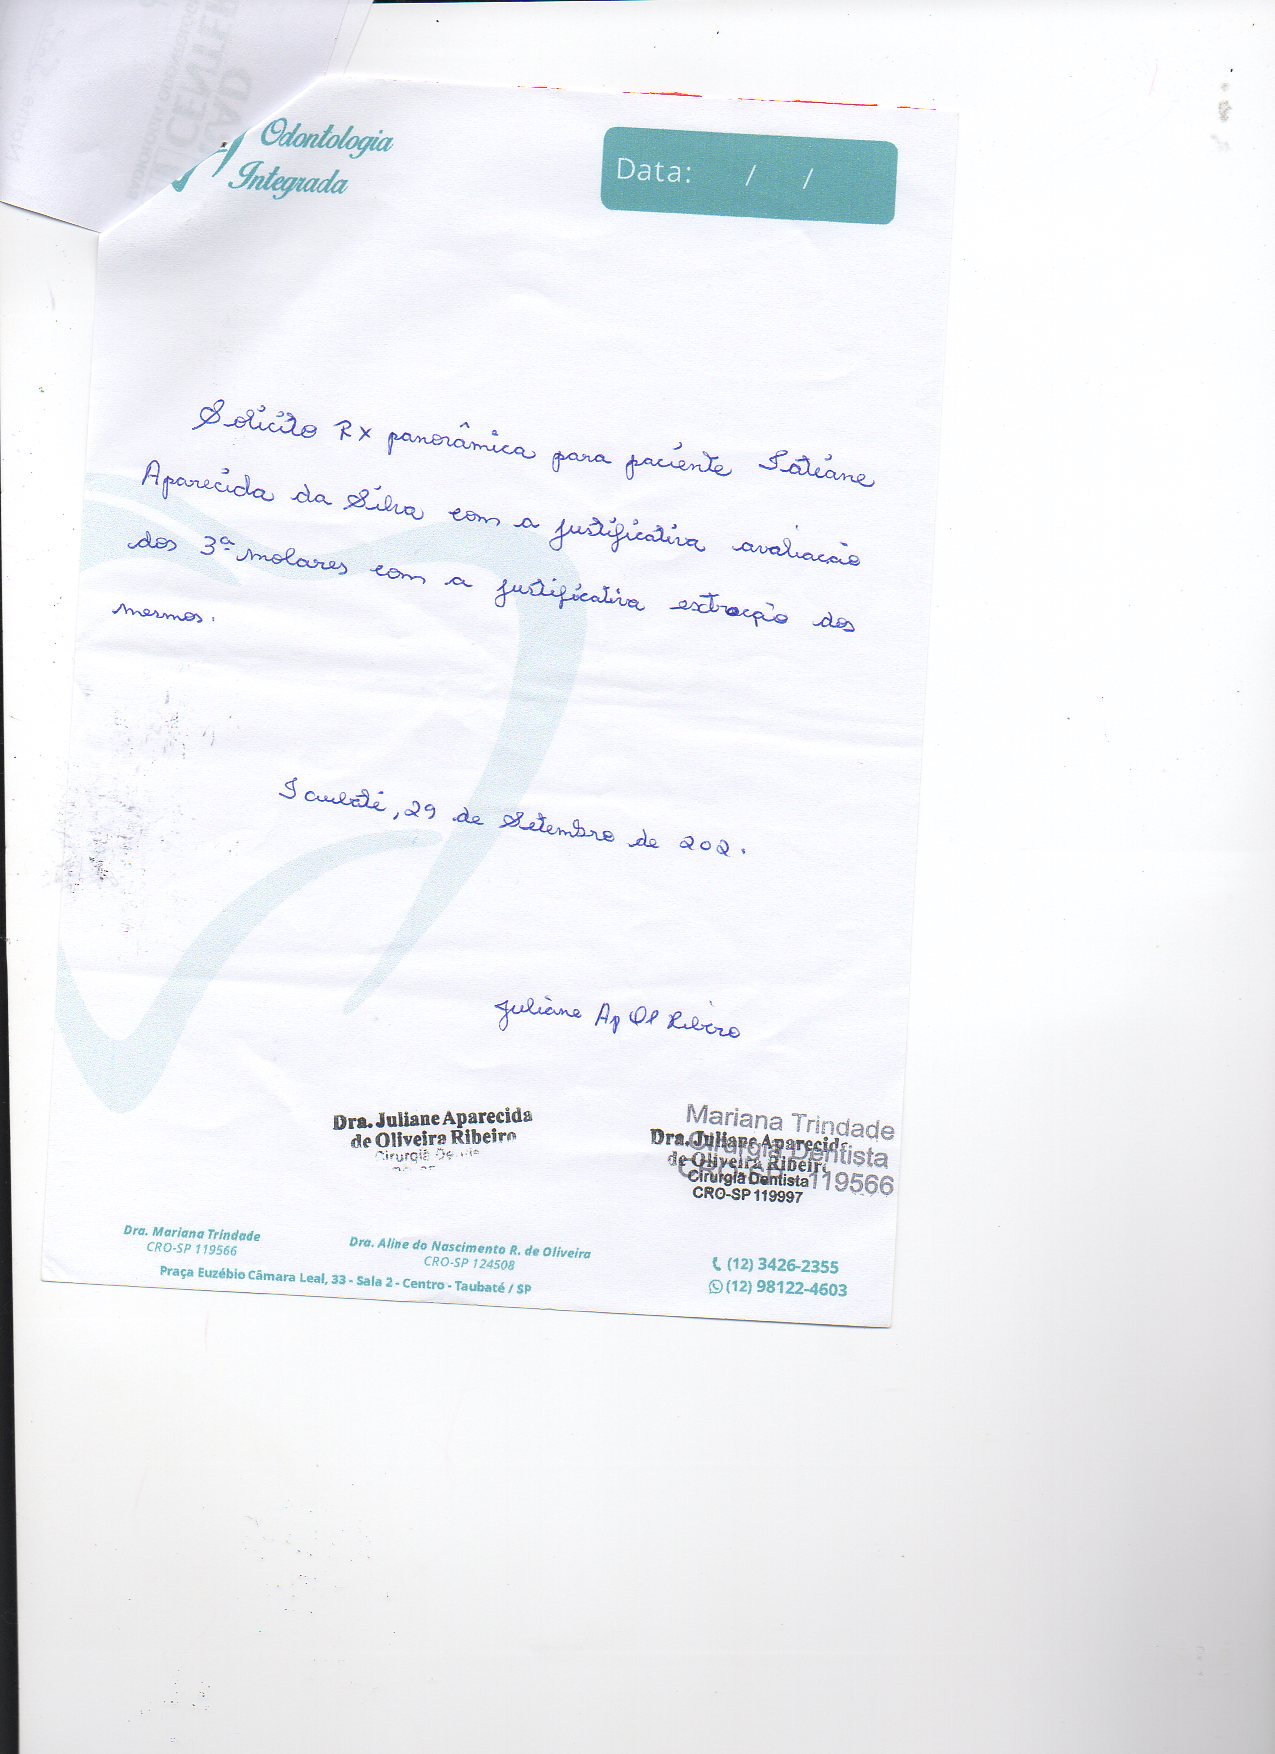 Odontologia
Integrada
Data: / /
Solicito RX panorâmica para paciente Tatiane
Aparecida da Silva com a justificativa avaliação
dos 3ª molares com a justificativa extração dos
mesmos.
Taubaté, 29 de Setembro de 202.
Juliane Ap Ol Ribeiro
Dra. Juliane Aparecida
de Oliveira Ribeiro
Cirurgiã De
Mariana Trindade
Cirurgiã Dentista
CRO-SP 119566
Dra. Juliane Aparecida
de Oliveira Ribeir
Cirurgiã Dentista
CRO-SP 119997
Dra. Mariana Trindade
CRO-SP 119566
Dra. Aline do Nascimento R. de Oliveira
CRO-SP 124508
Praça Euzébio Câmara Leal, 33 - Sala 2 - Centro - Taubaté / SP
(12) 3426-2355
(12) 98122-4603